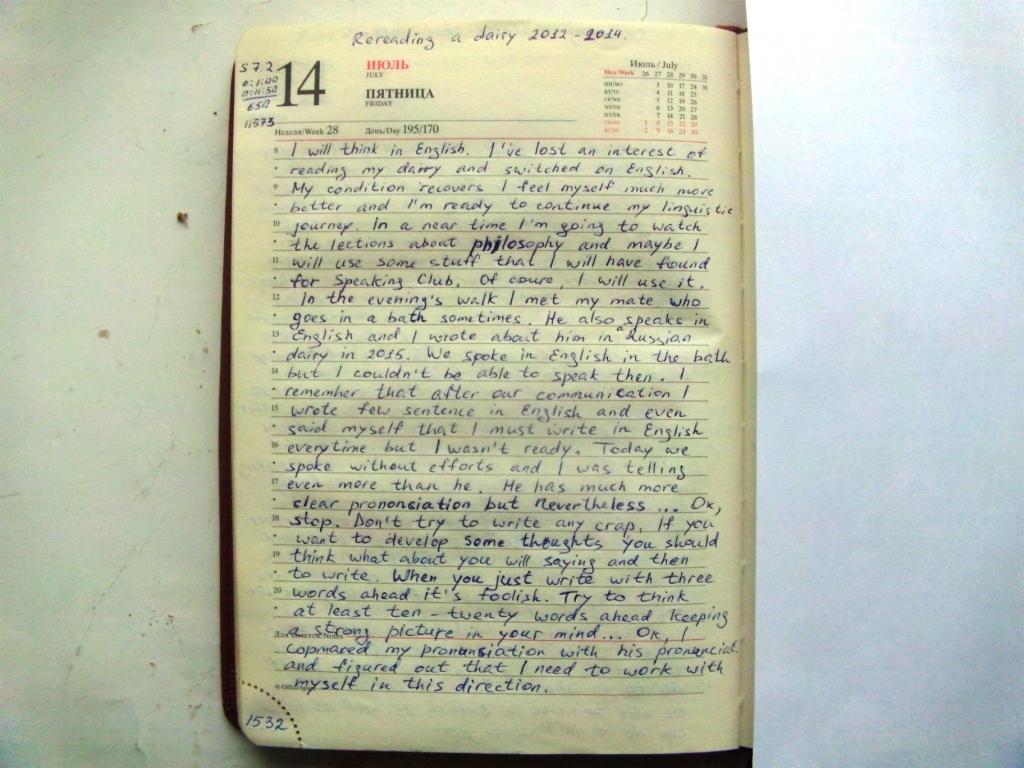 Rereading a dairy 2012 - 2014.
S 7.2
0:1:00
65Л
11573
14
ИЮЛЬ
JULY
ПЯТНИЦА
FRIDAY
Июль / July
Нед/Week 26 27 28 29 30 31
ПН/MO 3 10 17 24 31
ВТ/TU 4 11 18 25
СР/WE 5 12 19 26
ЧТ/TH 6 13 20 27
ПТ/FR 7 14 21 28
СБ/SA 1 8 15 22 29
ВС/SU 2 9 16 23 30
Неделя/Week 28 День/Day 195/170
8 I will think in English. I've lost an interest of
reading my dairy and switched on English.
9 My condition recovers I feel myself much more
better and I'm ready to continue my linguistic
10 journey. In a near time I'm going to watch
the lections about philosophy and maybe I
11 will use some stuff that I will have found
for Speaking Club. Of coure, I will use it.
12 In the evening's walk I met my mate who
goes in a bath sometimes. He also speaks in
13 English and I wrote about him in a Russian
dairy in 2015. We spoke in English in the bath
14 but I couldn't be able to speak then. I
remember that after our communication I
15 wrote few sentence in English and even
said myself that I must write in English
16 everytime but I wasn't ready. Today we
spoke without efforts and I was telling
17 even more than he. He has much more
clear prononsiation but nevertheless ... Ok,
18 stop. Don't try to write any crap. If you
want to develop some thoughts you should
19 think what about you will saying and then
to write. When you just write with three
20 words ahead it's foolish. Try to think
at least ten - twenty words ahead keeping
Для заметок/Notes a strong picture in your mind... Ok, I
copmared my pronunsiation with his pronunciat.
and figured out that I need to work with
myself in this direction.
1532